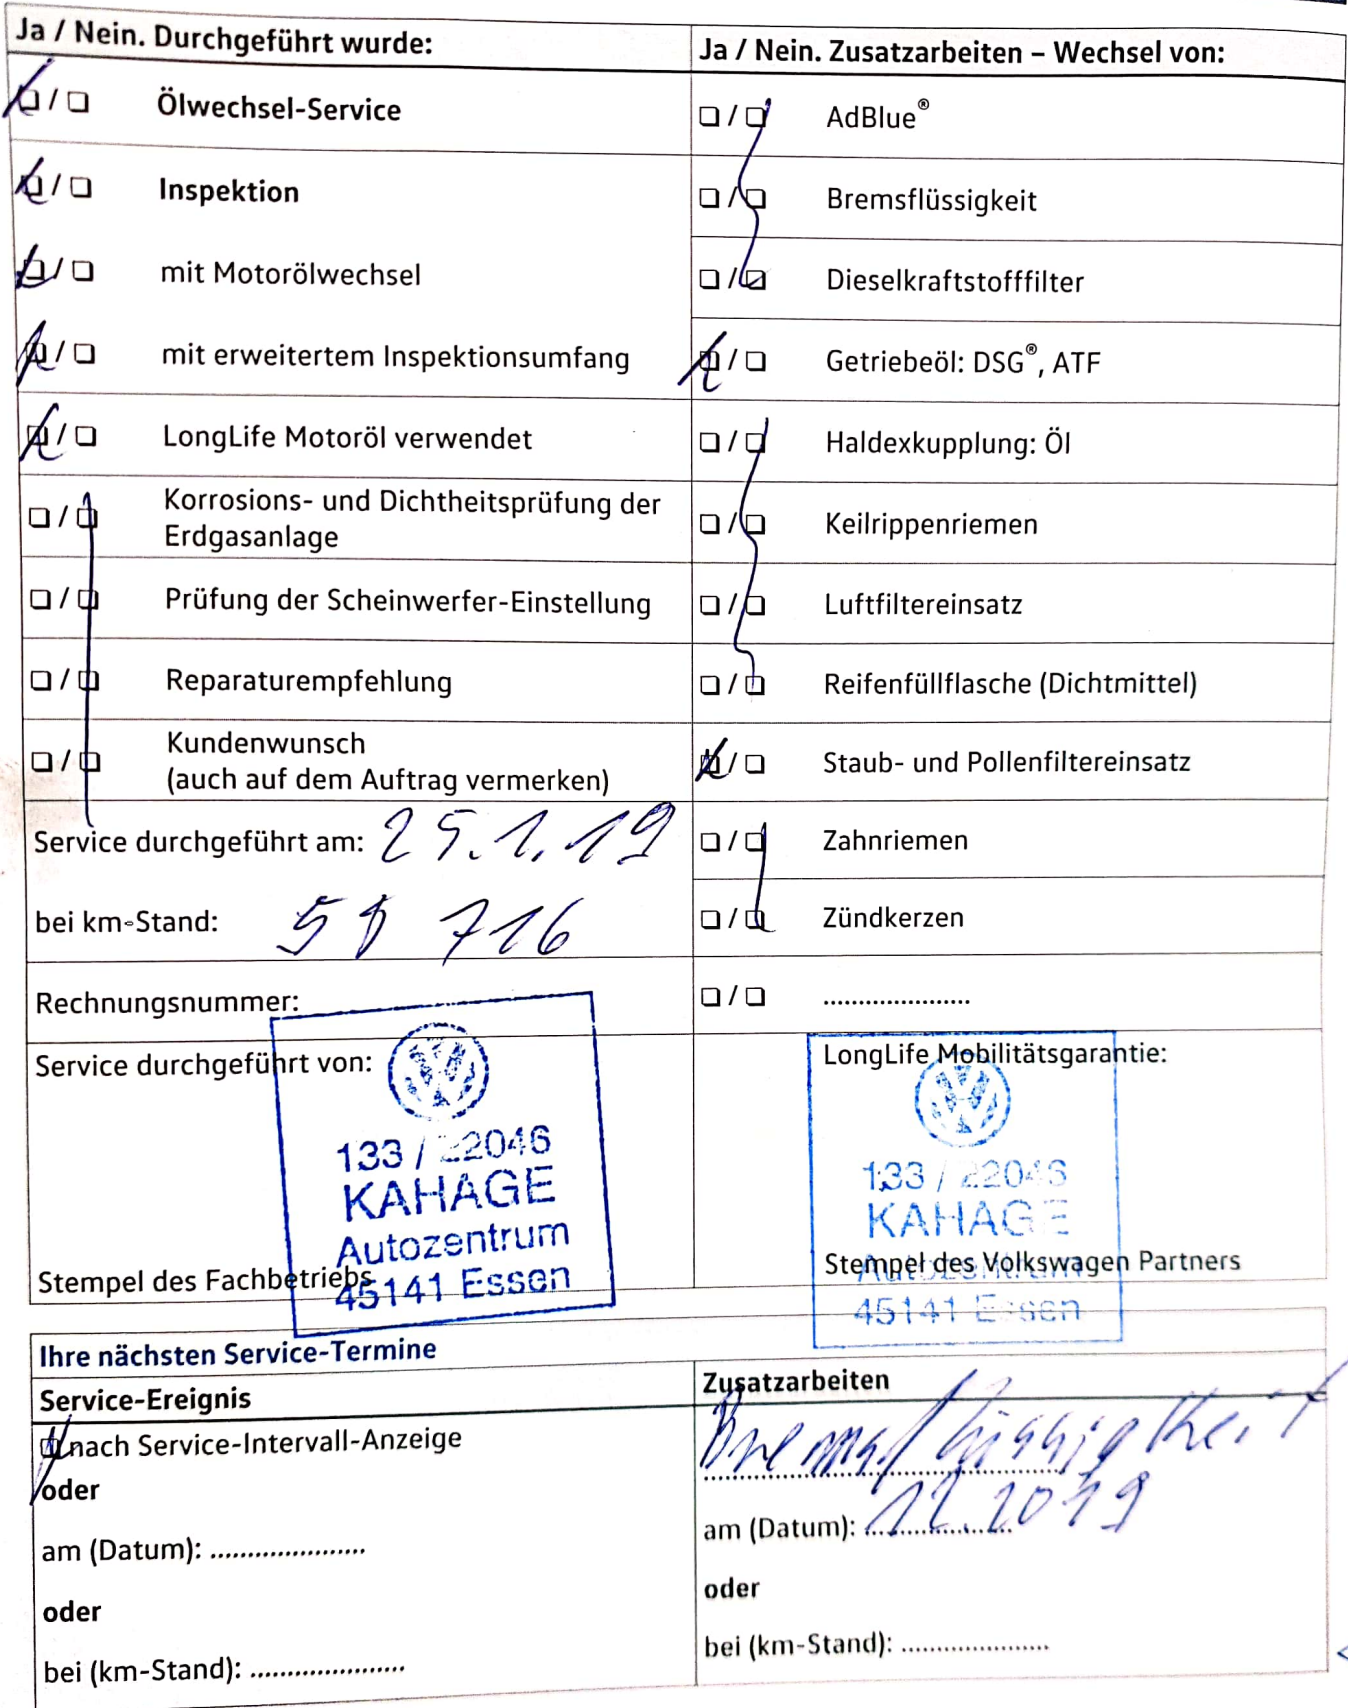 Ja / Nein. Durchgeführt wurde:
Ölwechsel-Service
Inspektion
mit Motorölwechsel
mit erweitertem Inspektionsumfang
LongLife Motoröl verwendet
Korrosions- und Dichtheitsprüfung der
Erdgasanlage
Prüfung der Scheinwerfer-Einstellung
Reparaturempfehlung
Kundenwunsch
(auch auf dem Auftrag vermerken)
Service durchgeführt am: 25.1.19
bei km-Stand: 716
Rechnungsnummer:
Service durchgeführt von:
133 / 22046
KAHAGE
Autozentrum
45141 Essen
Stempel des Fachbetriebs
Ja / Nein. Zusatzarbeiten – Wechsel von:
AdBlue®
Bremsflüssigkeit
Dieselkraftstofffilter
Getriebeöl: DSG®, ATF
Haldexkupplung: Öl
Keilrippenriemen
Luftfiltereinsatz
Reifenfüllflasche (Dichtmittel)
Staub- und Pollenfiltereinsatz
Zahnriemen
Zündkerzen
.....................
LongLife Mobilitätsgarantie:
133 / 22046
KAHAGE
Autozentrum
45141 Essen
Stempel des Volkswagen Partners
Ihre nächsten Service-Termine
Service-Ereignis
nach Service-Intervall-Anzeige
oder
am (Datum): .....................
oder
bei (km-Stand): .....................
Zusatzarbeiten
Bremsflüssigkeit
am (Datum): 12.2019
oder
bei (km-Stand): .....................